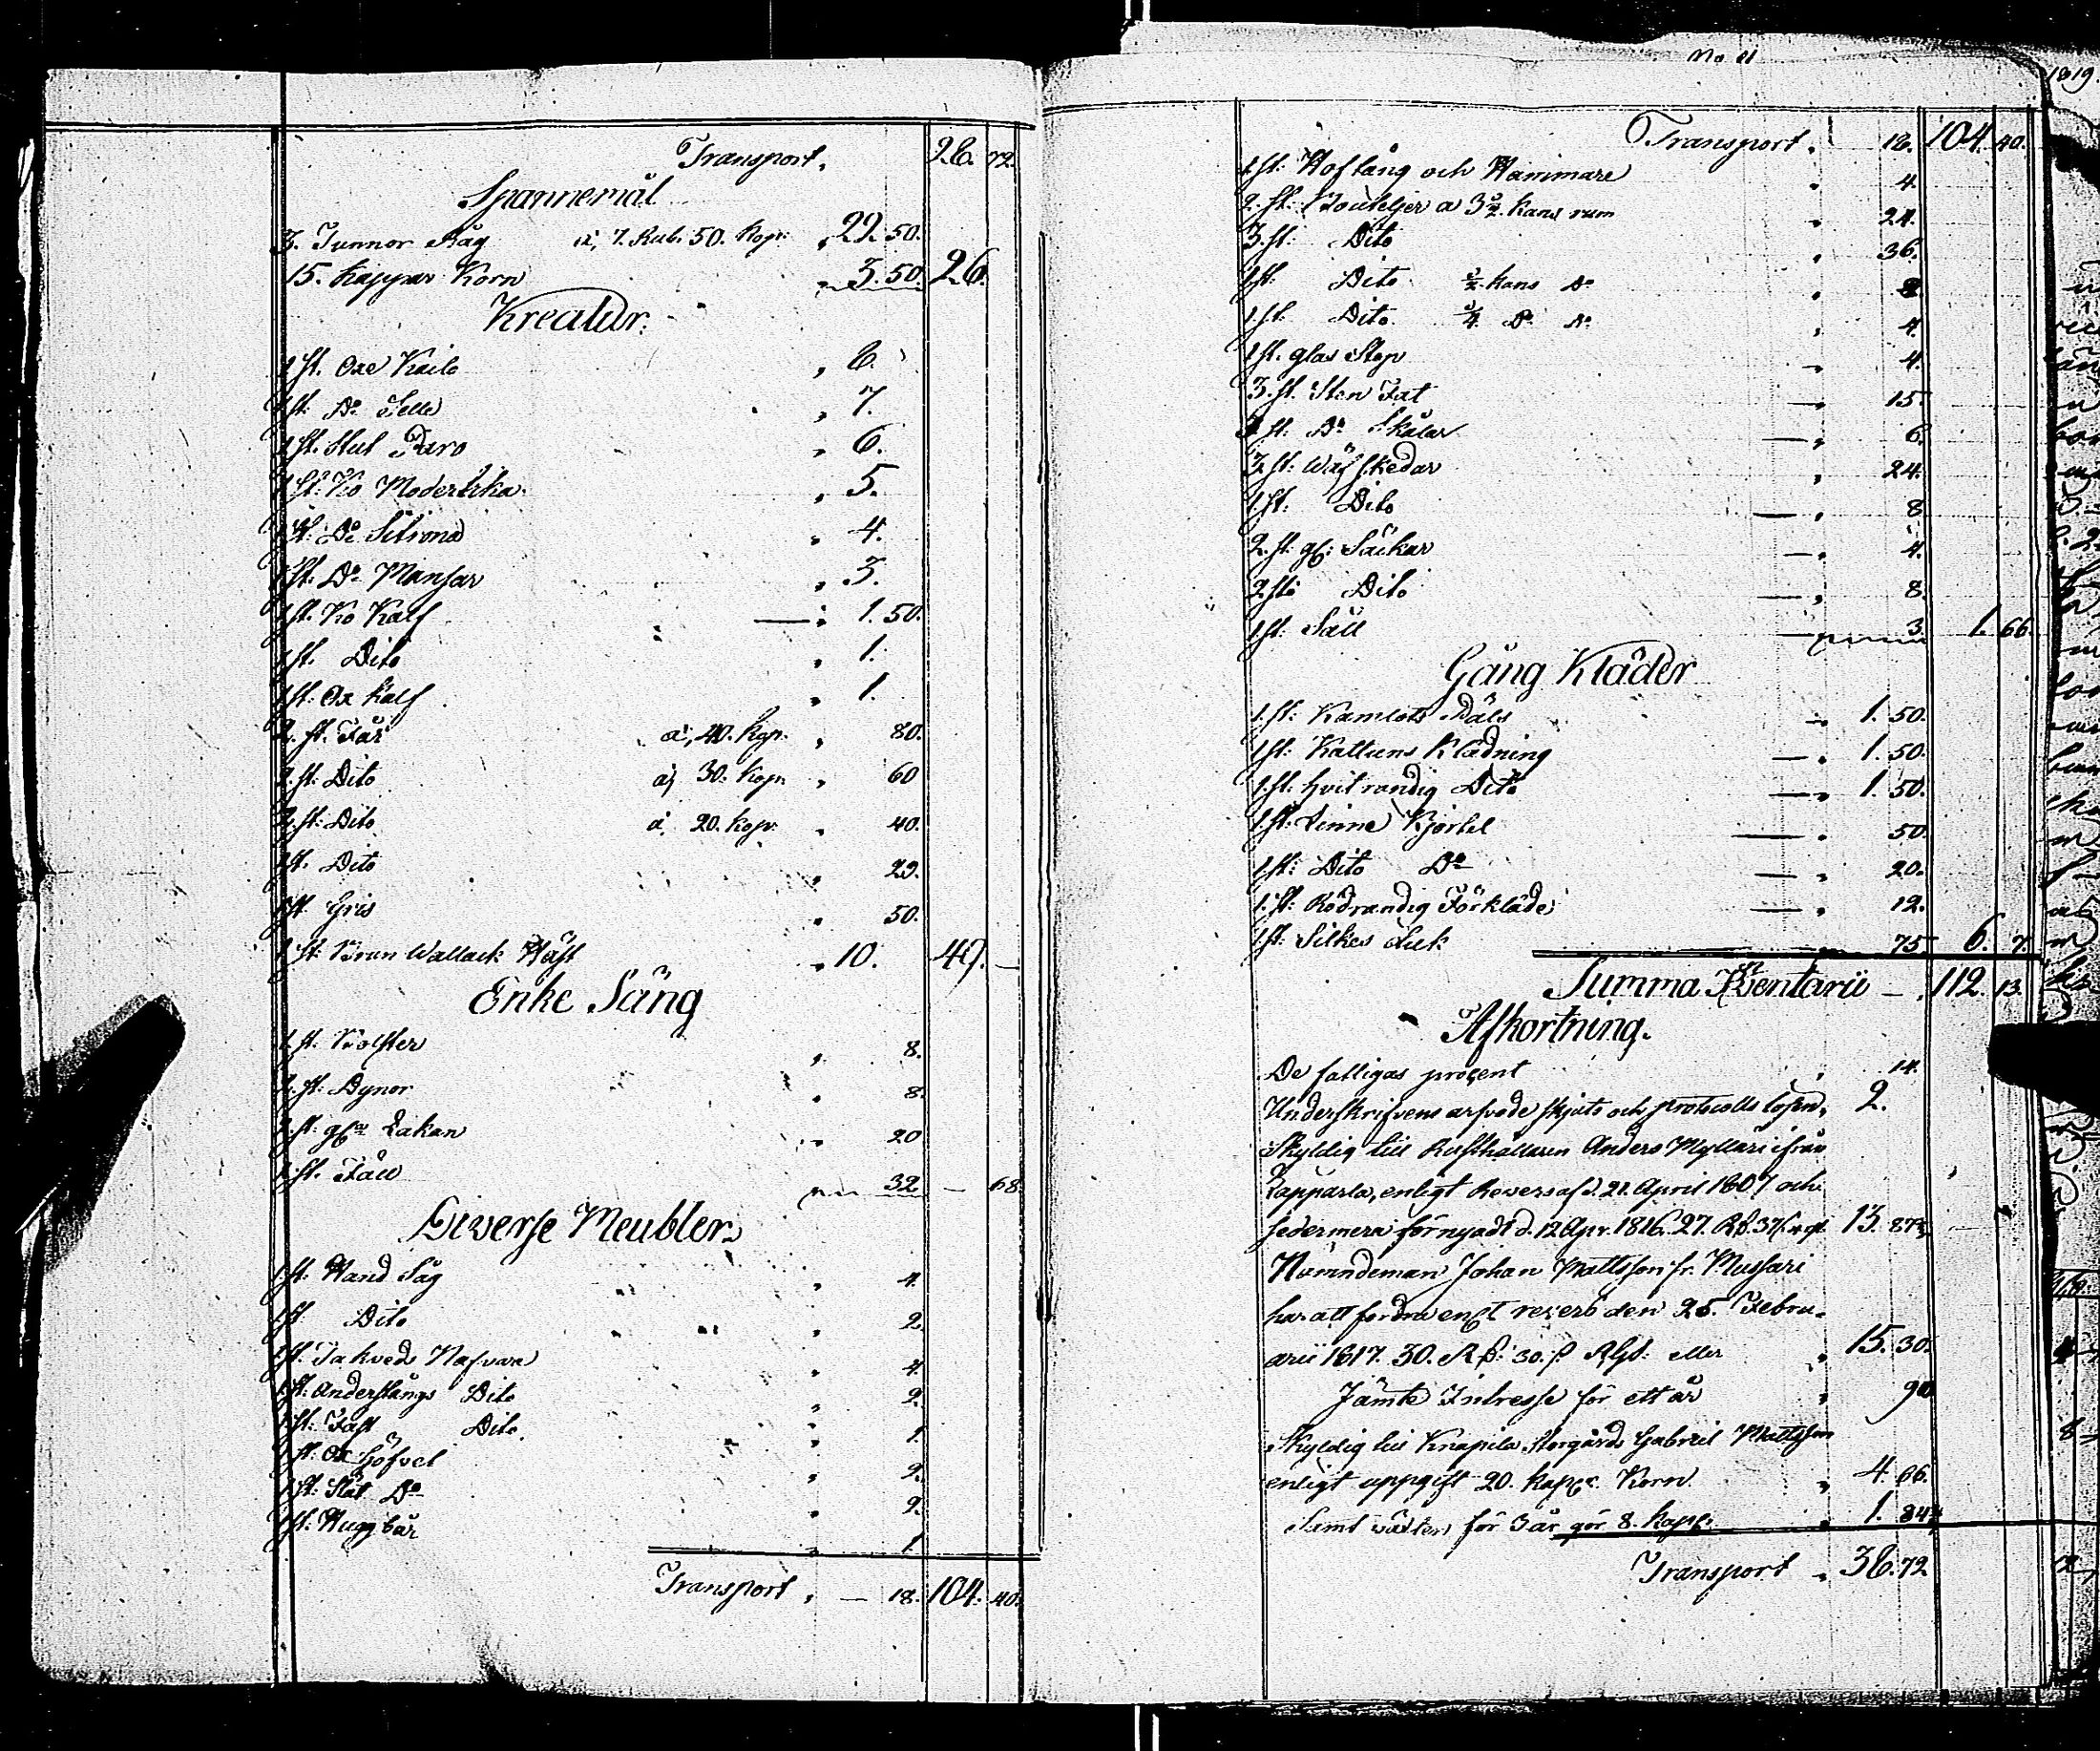 Transport. 26. 72.
Spannemål
3. Tunnor Råg a, 7. Rub. 50. Kop. 22. 50.
15. Kappar Korn 3. 50. 26.
Kreatur.
1 st. Oxe Kailo 6.
1 st. Do Selle 7.
1 st. Stut Paro 6.
1 st. Ko Moderikka 5.
1 st. Do Sitrona 4.
1 st. Do Mansar 3.
1 st. Ko Kalf 1. 50.
1 st. Dito 1.
1 st. Ox Kalf 1.
2. st. Får a, 40. Kop. 80.
2. st. Dito a, 30. Kop. 60
2. st. Dito a, 20. Kop. 40.
1 st. Dito 20.
1 st. Gris 50.
1 st. Brun Wallack Häst 10. 49. —
Enke Säng
1. st. Bolster 8.
2. st. Dynor 8.
2. st. gla Lakan 20
1. st. Fäll 32 — 68.
Diverse Meubler.
1. st. Hand Såg 4.
1 st. Dito 2.
1 st. Takveds Nafvare 4.
1 st. Anderstångs Dito 2.
1 st. Fast Dito. 1.
1 st. Ox Höfvel 2.
1 st. Slät Do 2.
1 st. Hugg bår 1.
Transport, — 18. 104. 40.
No 11
Transport. 18. 104. 40.
1. st. Hoftång och Hammare 4.
2. st. Bouteljer a 3/2 kans rum 24.
3. st. Dito 36.
1 st. Dito 1/2 kans Do 8
1 st. Dito 1/4 Do Do 4.
1 st. glas Stop 4.
3. st. Sten Fat 15.
3 st. Do Skålar 6.
3. st. Wäfskedar 24.
1 st. Dito 8
2. st. gl. Säckar 4.
2 st. Dito 8.
1 st. Såll 3. 1. 66.
Gång Kläder
1. st. Kamlots Päls 1. 50.
1 st. Kattuns Klädning 1. 50.
1. st. hvit randig Dito 1. 50.
1. st. Linne Kjortel 50.
1 st. Dito Do 20.
1. st. Rödrandig Förkläde 12.
1 st. Silkes Duk 75 6. 7.
Summa Inventarii — 112. 13.
Afkortning.
De fattigas procent 14.
Underskrifvens arfvode skjuts och protocolls lösen, 2.
Skyldig till Rusthållaren Anders Mylläri ifrån
Lapparla, enligt Revers af d. 21. April 1807 och
sedermera förnyadt d. 12 Apr. 1816. 27. Rß. 37 13. 87
Nämndeman Johan Mattsson fr. Mussari
har att fordra enlt revers den 25. Febru-
arii 1817. 30. Rß: 30. ß Rgs. eller 15. 30.
Jämte Intresse för ett år 90
Skyldig till Knapila Storgårds Gabriel Mattsson
enligt uppgift 20. kappr. Korn. 4. 66.
Samt växten för 3 år gör 8. kapp. 1. 84
Transport 38. 72
1819.